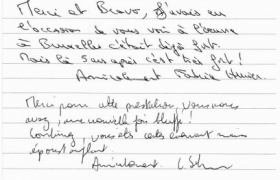 Merci et Bravo, j'avais eu
l'occasion de vous voir à l'œuvre
à Bruxelles c'était déjà fort.
Mais là 5 ans après c'est très fort !
Amicalement
Merci pour cette prestation, vous nous
avez, une nouvelle fois bluffé !
vous êtes
époustouflant.
Amicalement